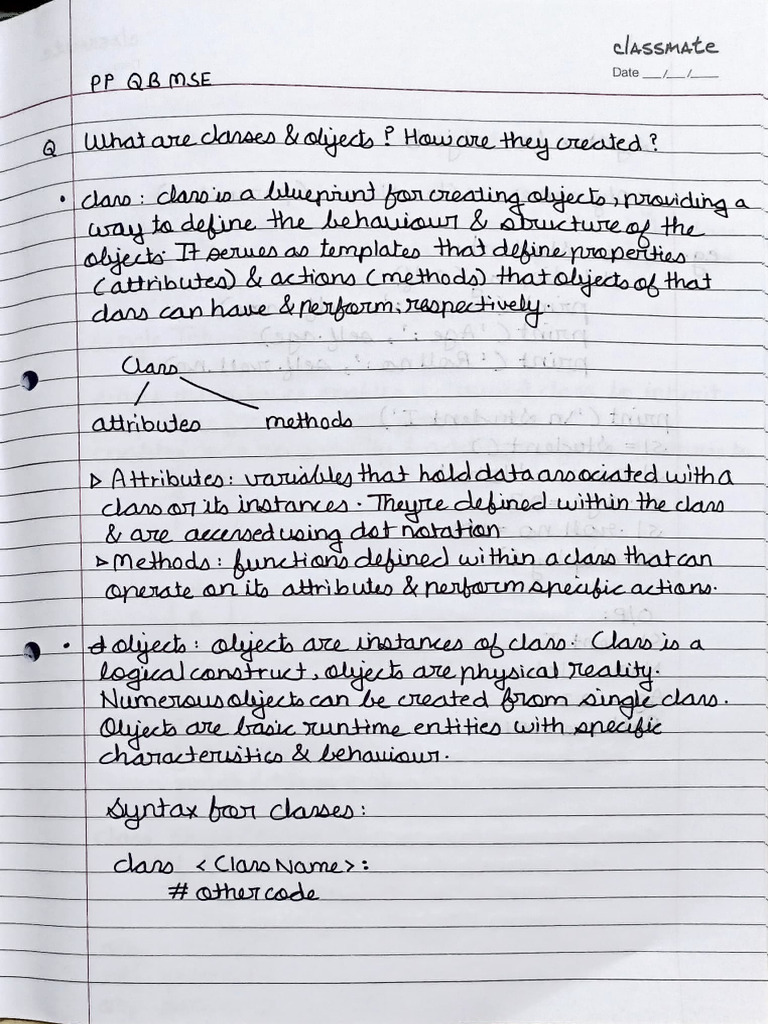 classmate
Date __/__/____
PP QB MSE
Q What are classes & objects? How are they created?
• class: class is a blueprint for creating objects, providing a
way to define the behaviour & structure of the
objects. It serves as templates that define properties
(attributes) & actions (methods) that objects of that
class can have & perform, respectively.
Class
attributes methods
▷ Attributes: variables that hold data associated with a
class or its instances. They're defined within the class
& are accessed using dot notation
▷ Methods: functions defined within a class that can
operate on its attributes & perform specific actions.
• objects: objects are instances of class. Class is a
logical construct, objects are physical reality.
Numerous objects can be created from single class.
Objects are basic runtime entities with specific
characteristics & behaviour.
Syntax for classes:
class <ClassName>:
# other code